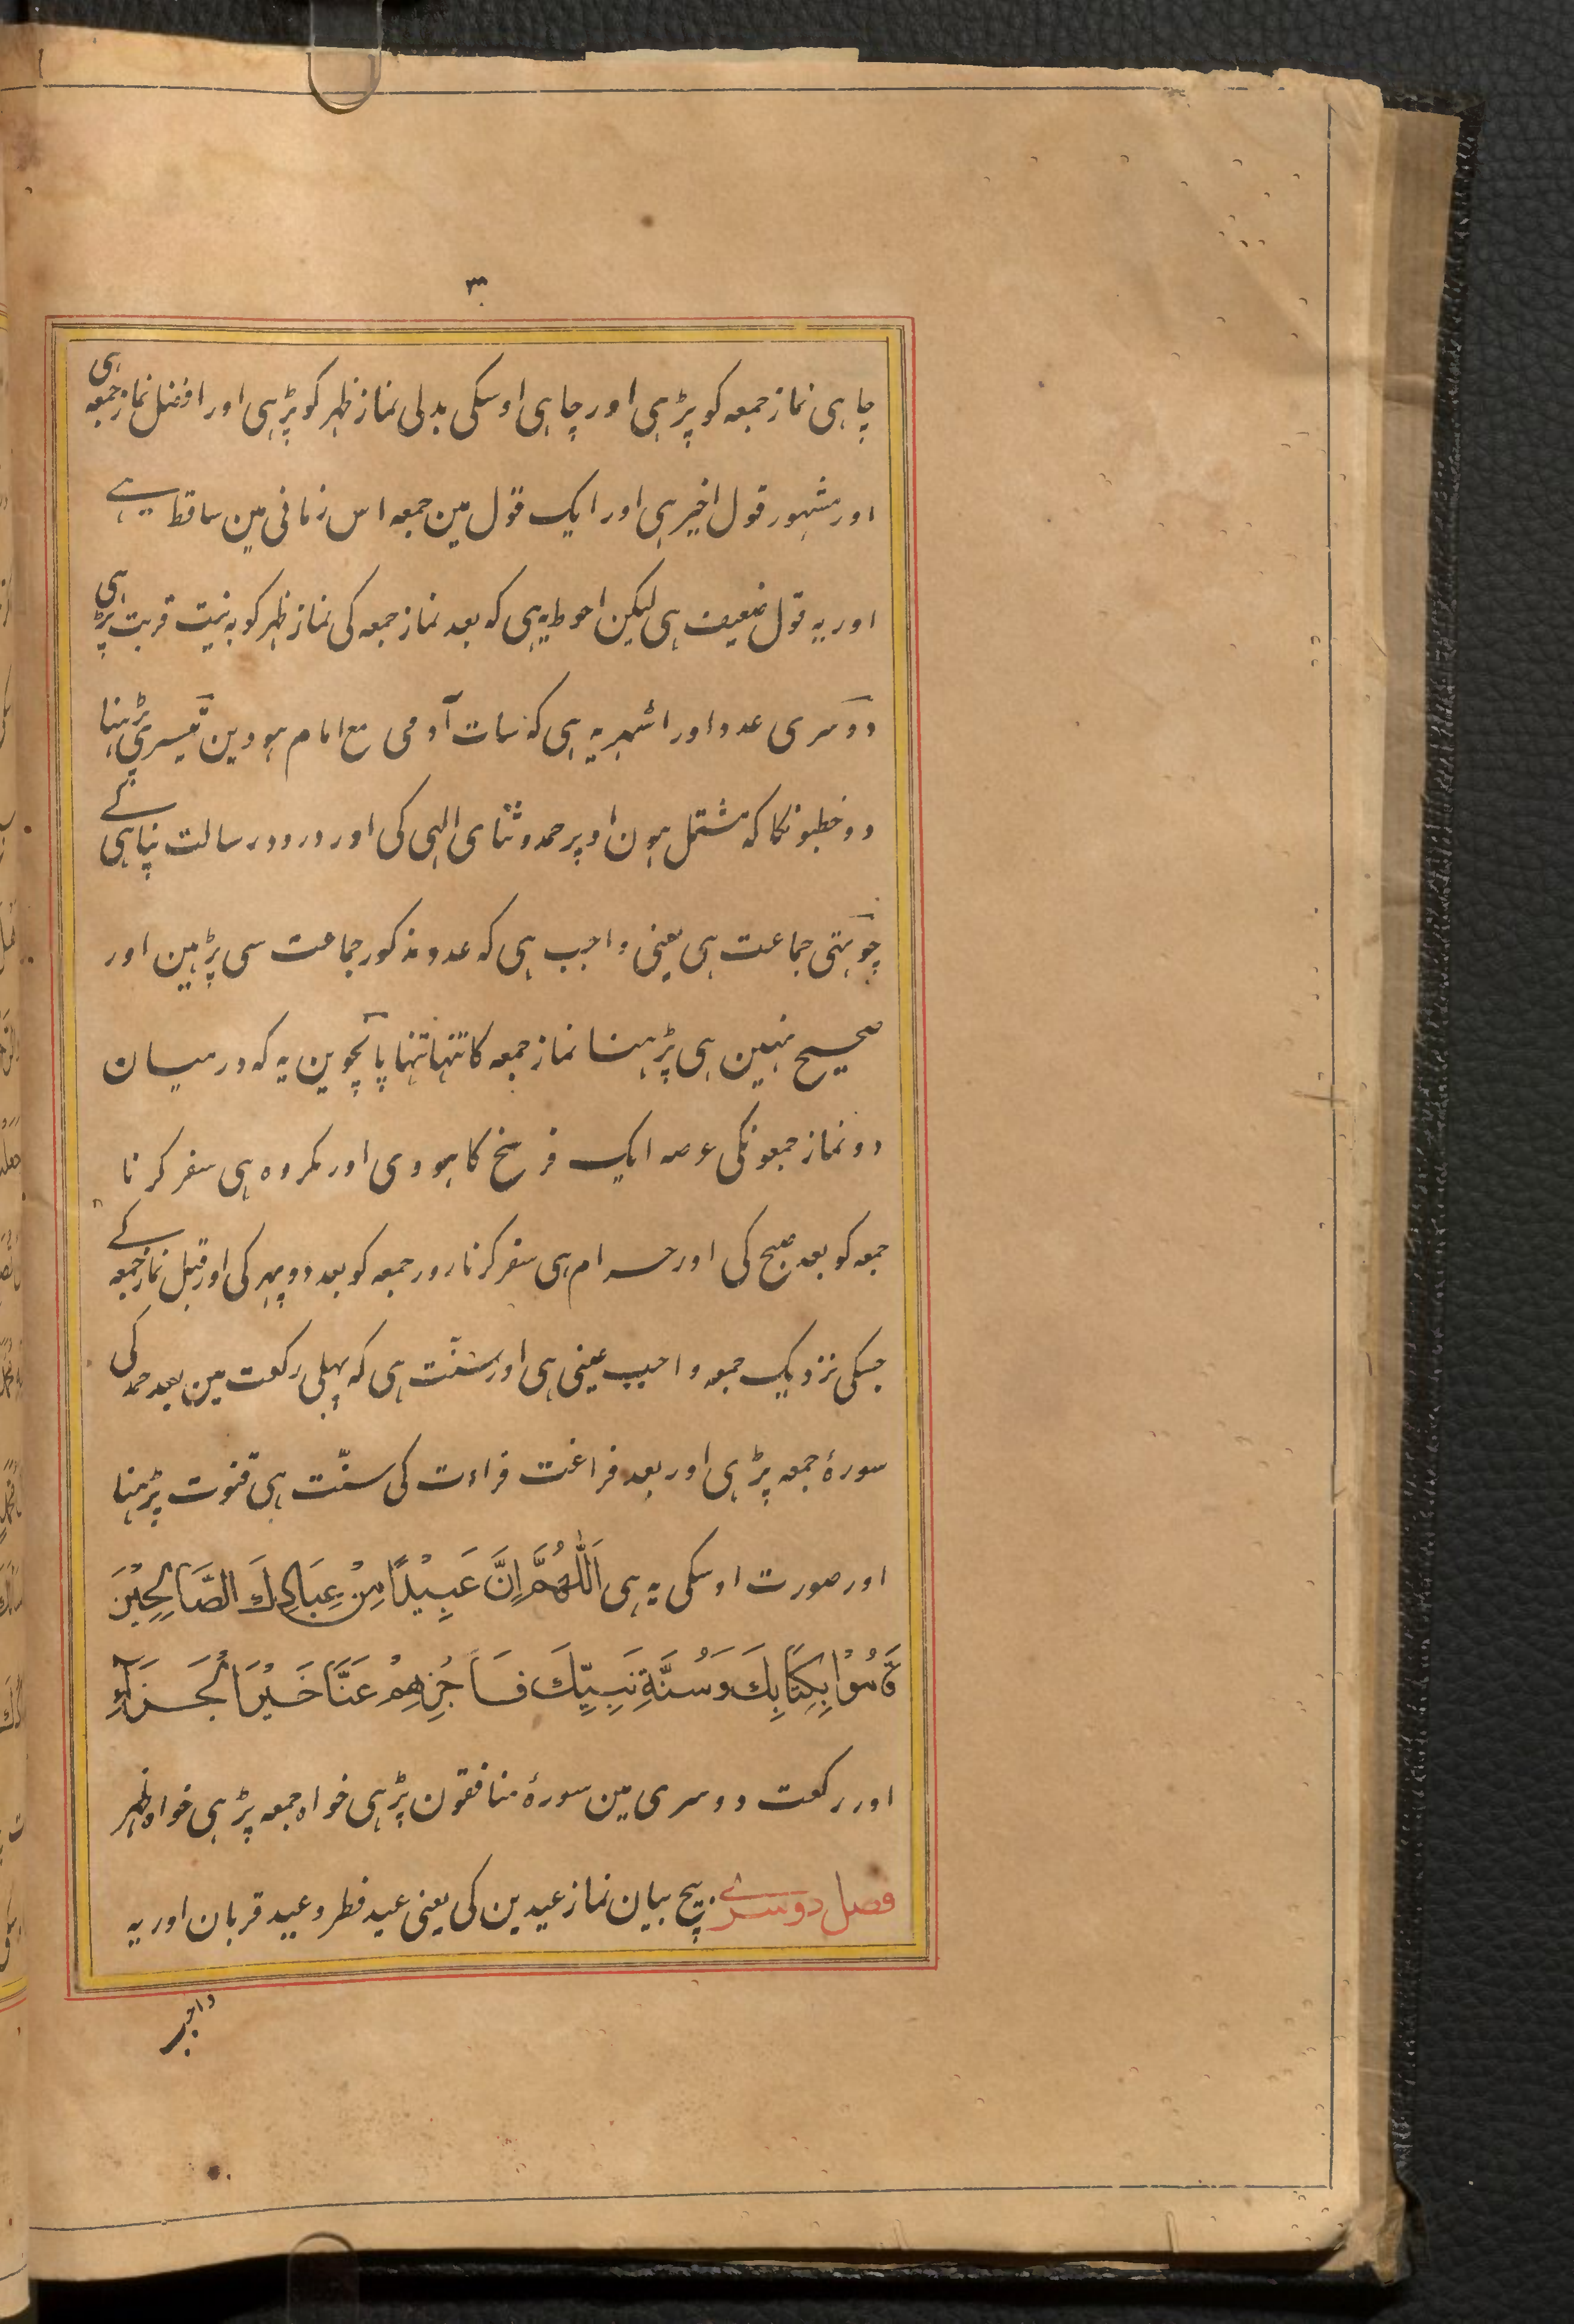 ۳
چاہی نماز جمعہ کو پڑہی اور چاہی اوسکی بدلی نماز ظہر کو پڑہی اور افضل نماز جمعہ ہی
اور مشہور قول اخیر ہی اور ایک قول مین جمعہ اس زمانی مین ساقط ہے
اور یہ قول ضعیف ہی لیکن احوط یہ ہی کہ بعد نماز جمعہ کی نماز ظہر کو بہ نیت قربت پڑہی
دوسری عدد اور اشہر یہ ہی کہ سات آدمی مع امام ہووین تیسری پڑہنا
دو خطبونکا کہ مشتمل ہون اوپر حمد و ثنای الہی کی اور درود رسالت پناہی کے
چوتہی جماعت ہی یعنی واجب ہی کہ عدد مذکور جماعت سی پڑہین اور
صحیح نہین ہی پڑہنا نماز جمعہ کا تنہا تنہا پانچوین یہ کہ درمیان
دو نماز جمعونکی عرصہ ایک فرسخ کا ہووی اور مکروہ ہی سفر کرنا
جمعہ کو بعد صبح کی اور حرام ہی سفر کرنا روز جمعہ کو بعد دوپہر کی اور قبل نماز جمعہ کے
جسکی نزدیک جمعہ واجب عینی ہی اور سنّت ہی کہ پہلی رکعت مین بعد حمد کی
سورۂ جمعہ پڑہی اور بعد فراغت قراءت کی سنّت ہی قنوت پڑہنا
اور صورت اوسکی یہ ہی اَللّٰهُمَّ اِنَّ عَبِيْدًا مِنْ عِبَادِكَ الصَّالِحِيْنَ
قَامُوْا بِكِتَابِكَ وَسُنَّةِ نَبِيِّكَ فَاجْزِهِمْ عَنَّا خَيْرَ الْجَزَآءِ
اور رکعت دوسری مین سورۂ منافقون پڑہی خواہ جمعہ پڑہی خواہ ظہر
فصل دوسرے بیچ بیان نماز عیدین کی یعنی عید فطر و عید قربان اور یہ
واجب